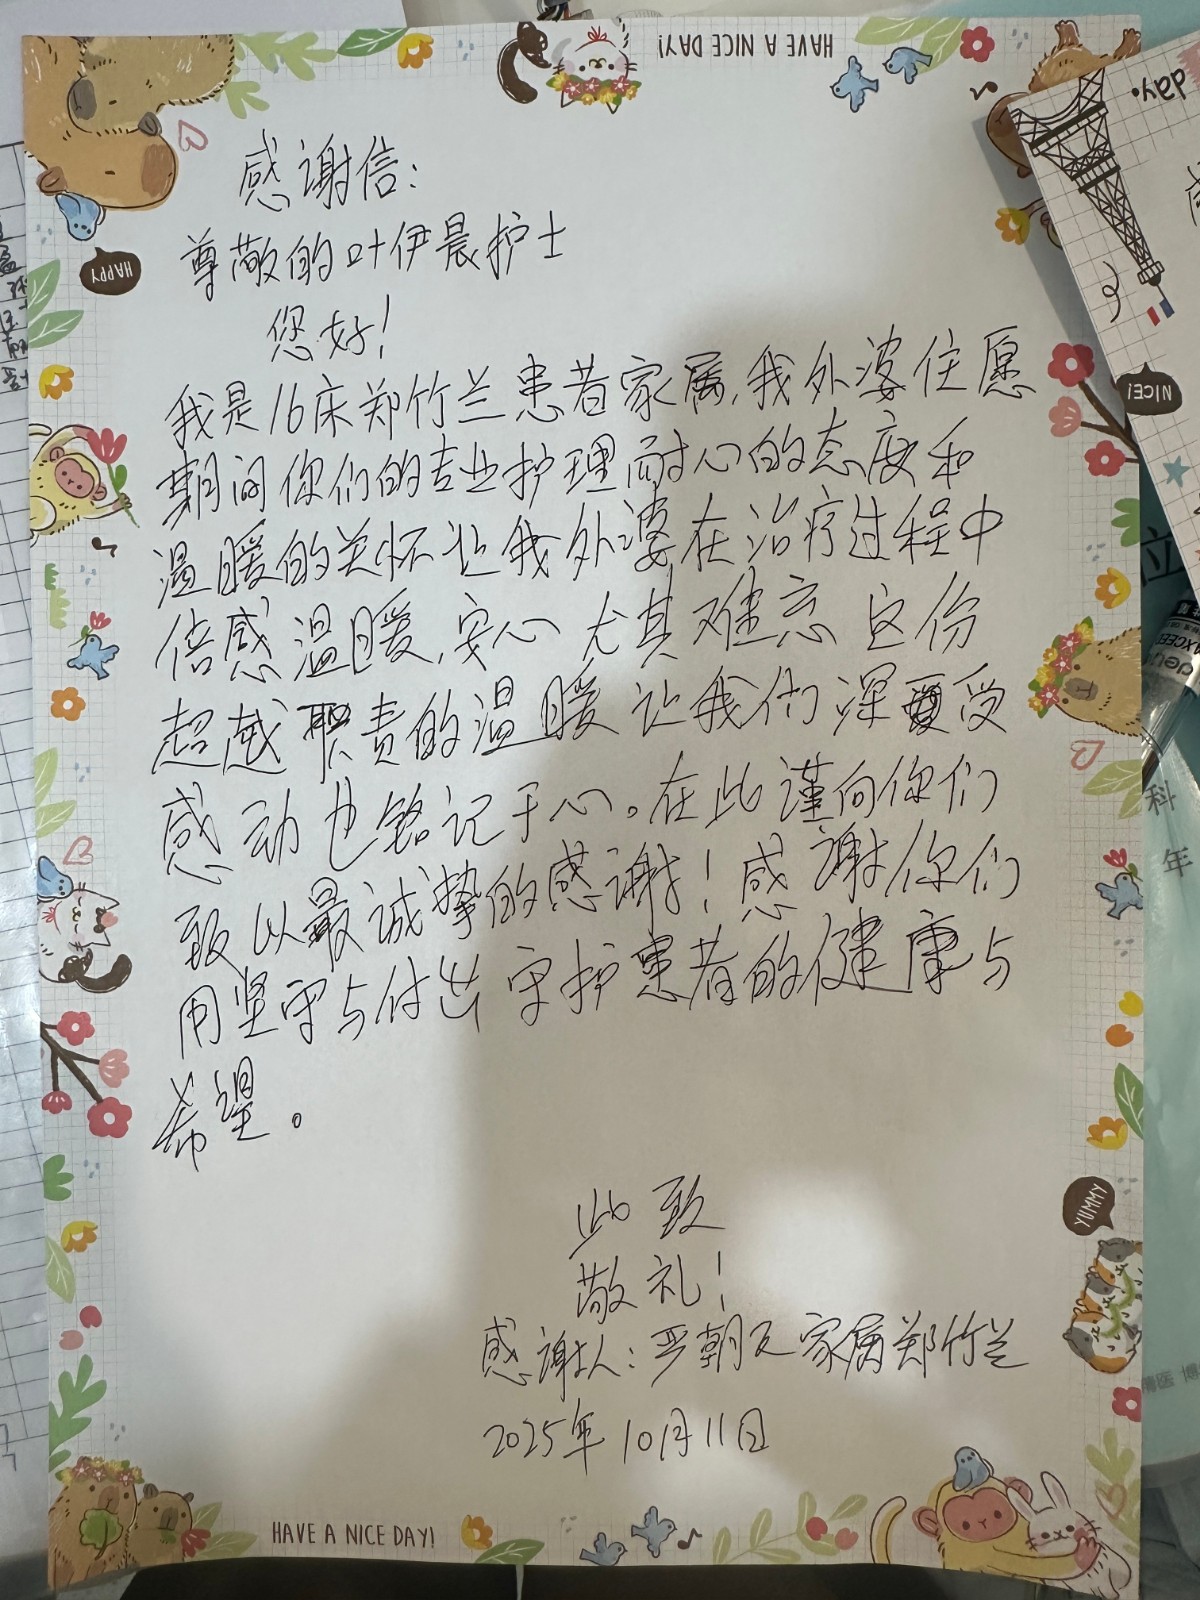 HAVE A NICE DAY!
day.
感谢信:
尊敬的叶伊晨护士
HAPPY
您好!
我是16床郑竹兰患者家属,我外婆住愿
NICE!
期间你们的专业护理耐心的态度和
温暖的关怀让我外婆在治疗过程中
倍感温暖,安心 尤其难忘 这份
超越职责的温暖让我们深受
感动也铭记于心。在此谨向你们
致以最诚挚的感谢!感谢你们
用坚守与付出 守护患者的健康与
希望。
科
年
YUMMY
此致
敬礼!
感谢人:严朝及家属郑竹兰
2025年10月11日
HAVE A NICE DAY!